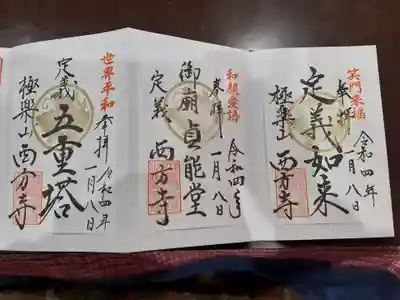 笑門来福
奉拝
令和四年
一月八日
定義如来
極楽山
西方寺
和顔愛語
奉拝
令和四年
一月八日
御廟貞能堂
定義
西方寺
世界平和
奉拝
令和四年
一月八日
定義
五重塔
極楽山
西方寺